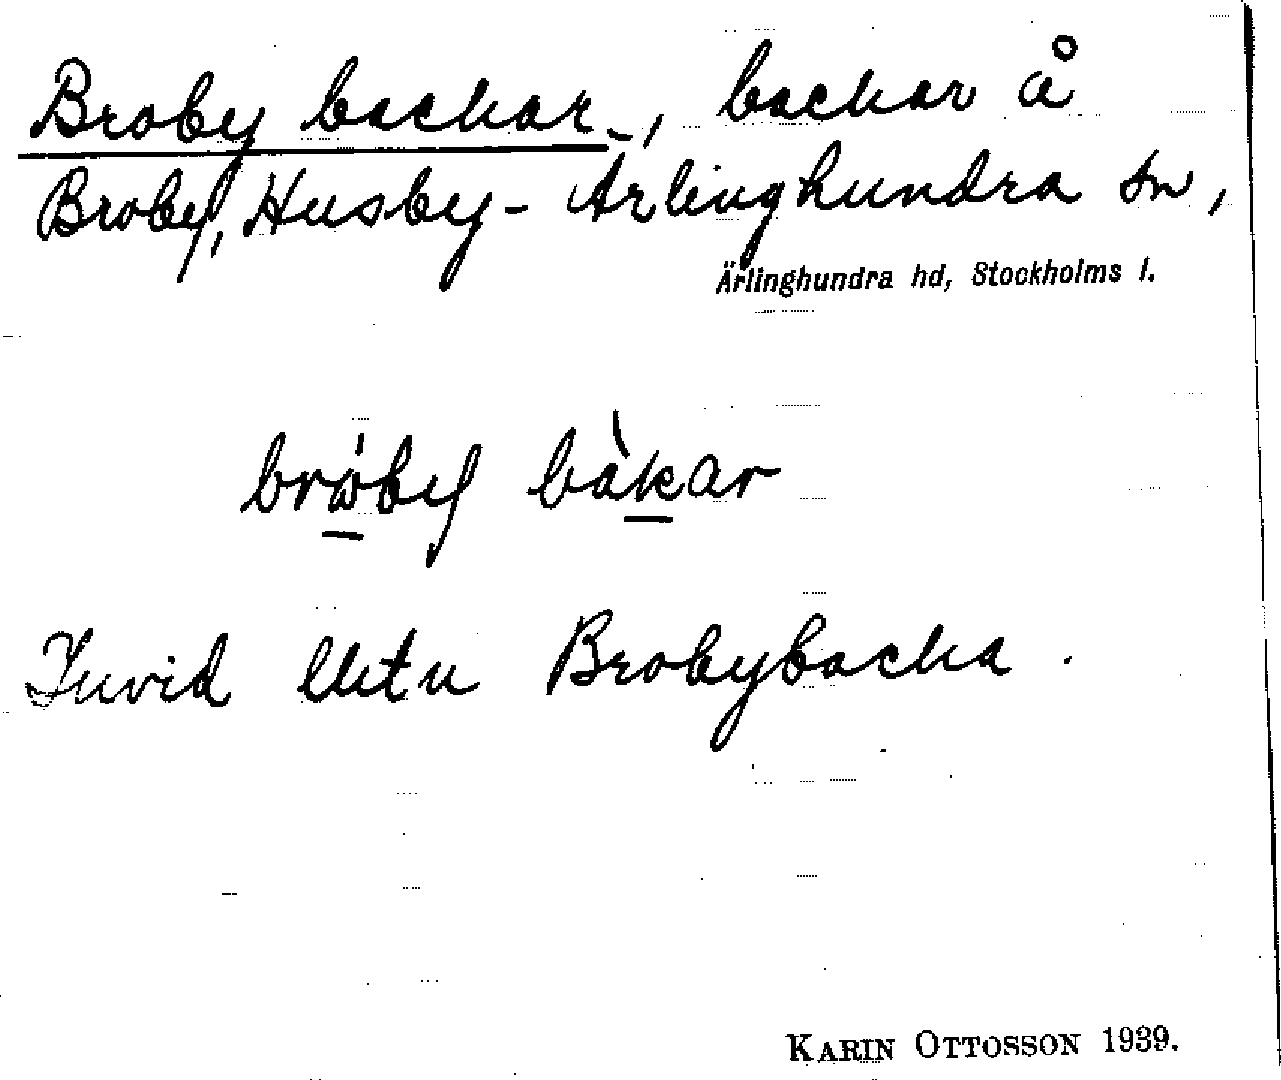 Broby backar, backar å
Broby, Husby-Ärlinghundra sn,
Ärlinghundra hd, Stockholms l.
brωby bakar
Invid Brobybacka.
KARIN OTTOSSON 1939.